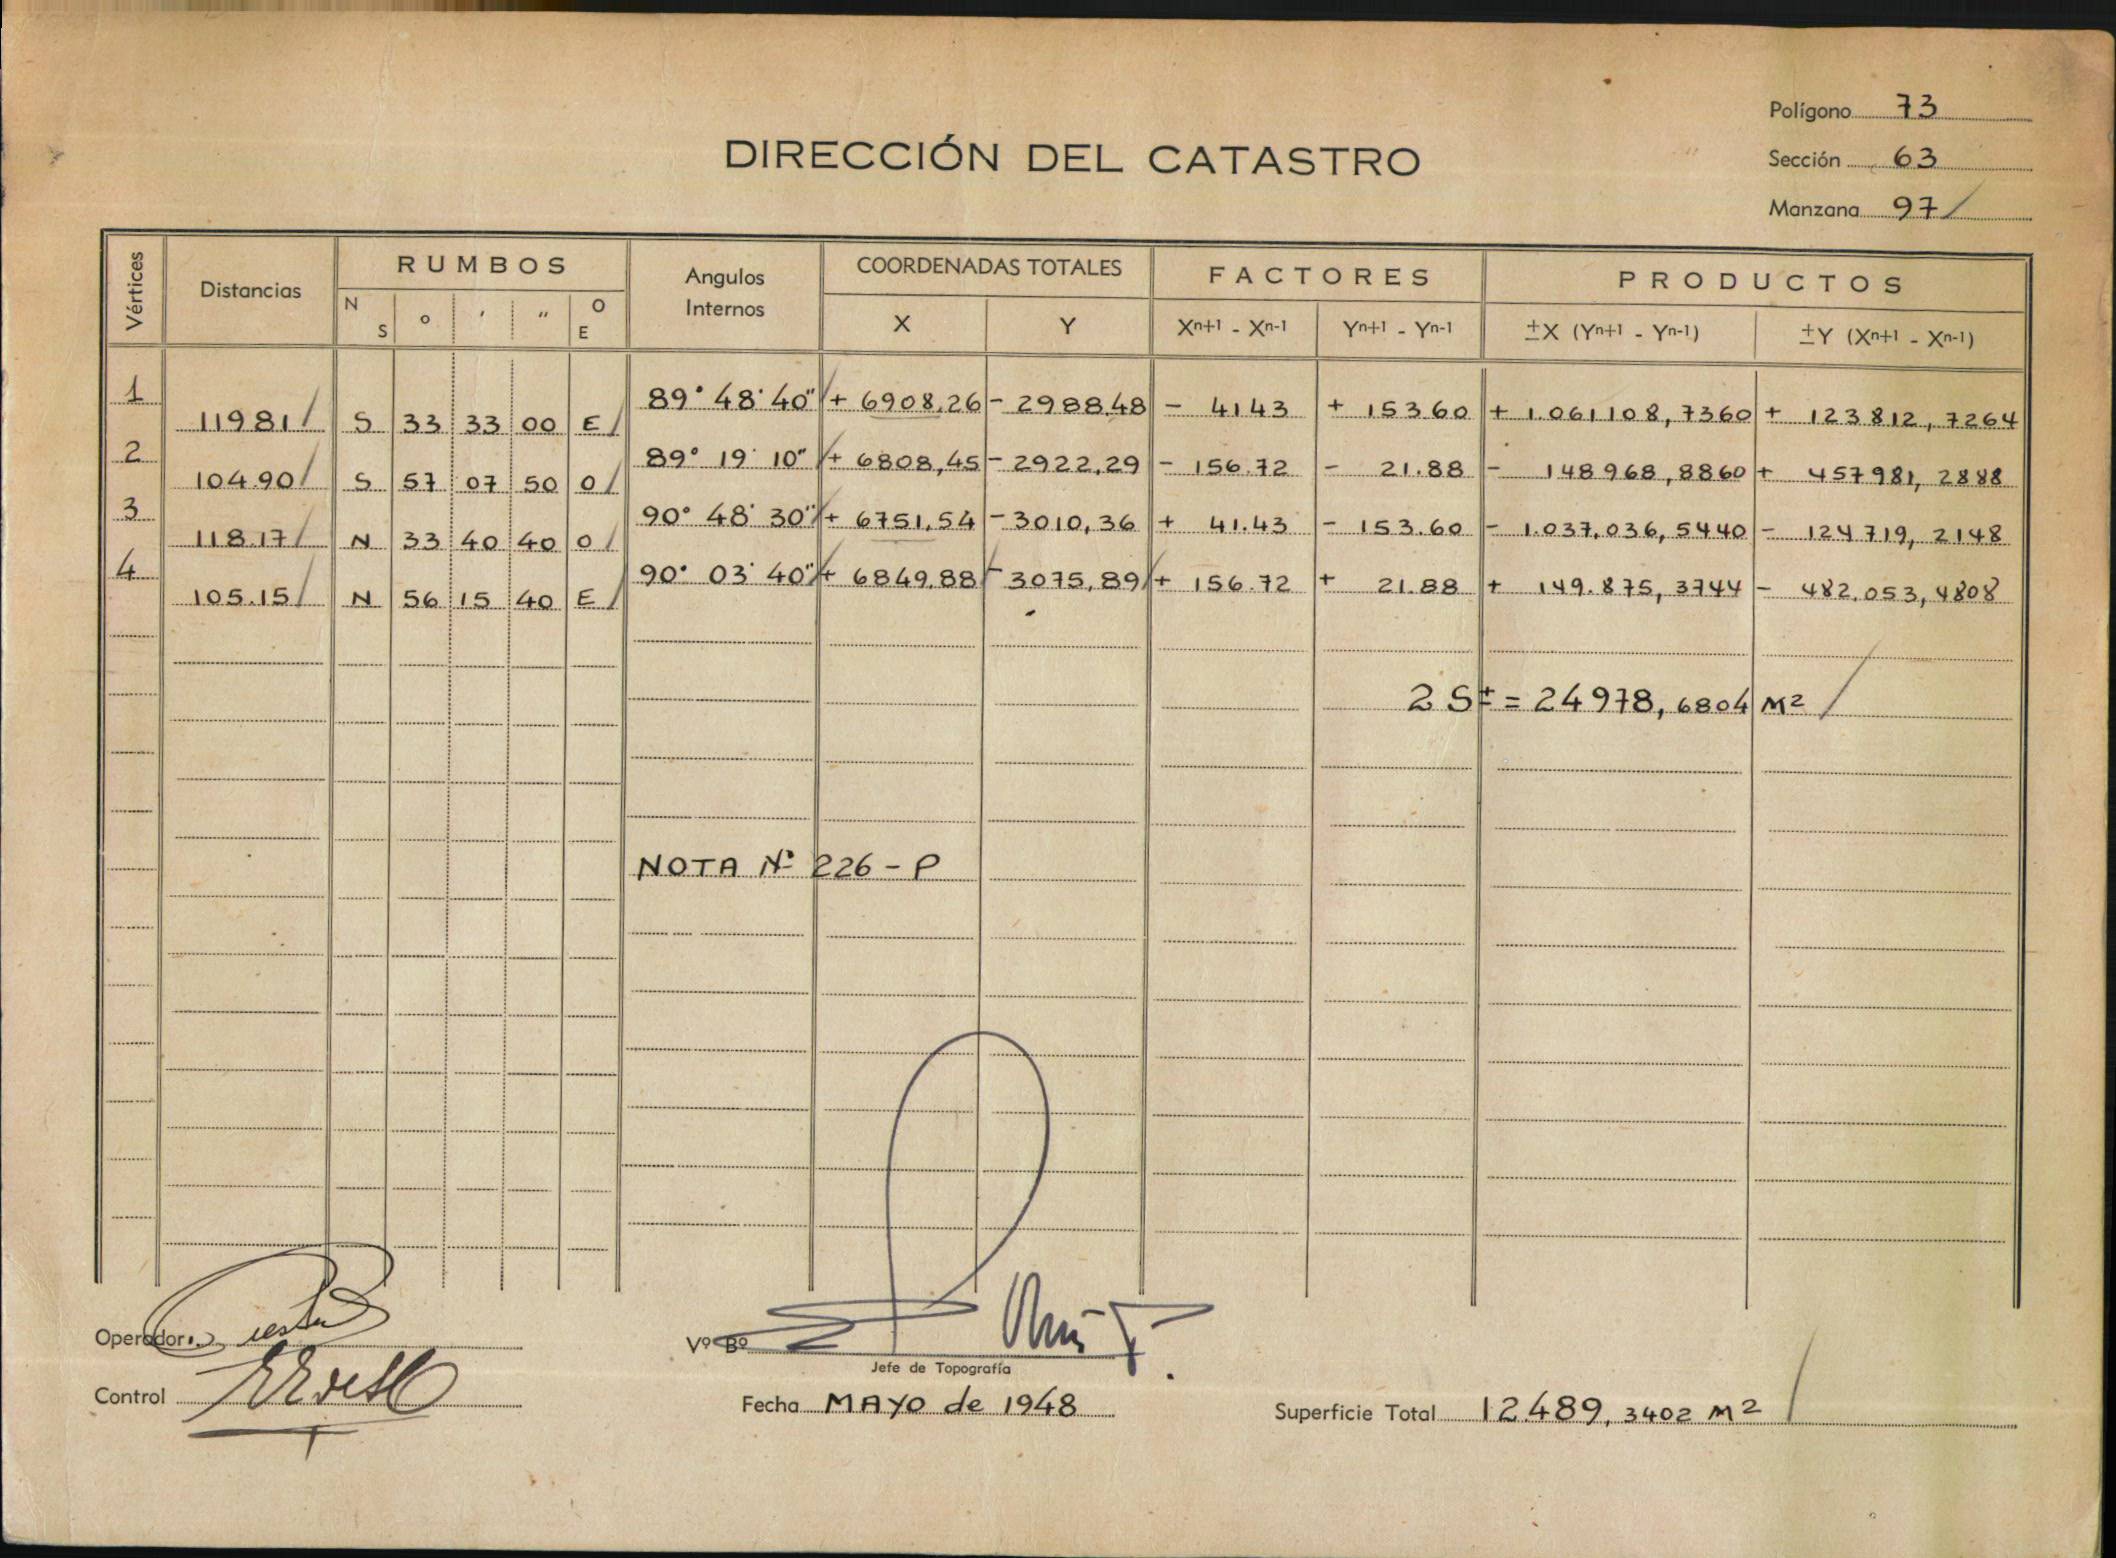 Polígono 73
DIRECCIÓN DEL CATASTRO
Sección 63
Manzana 97
Vértices Distancias RUMBOS Angulos Internos COORDENADAS TOTALES FACTORES PRODUCTOS
N S ° ′ ″ O E X Y Xn+1 - Xn-1 Yn+1 - Yn-1 ±X (Yn+1 - Yn-1) ±Y (Xn+1 - Xn-1)
1 89° 48' 40" + 6908,26 - 2988,48 - 41.43 + 153.60 + 1.061.108,7360 + 123.812,7264
119.81 S 33 33 00 E
2 89° 19' 10" + 6808,45 - 2922,29 - 156.72 - 21.88 - 148968,8860 + 457981,2888
104.90 S 57 07 50 O
3 90° 48' 30" + 6751,54 - 3010,36 + 41.43 - 153.60 - 1.037.036,5440 - 124719,2148
118.17 N 33 40 40 O
4 90° 03' 40" + 6849,88 - 3075,89 + 156.72 + 21.88 + 149.875,3744 - 482.053,4808
105.15 N 56 15 40 E
2 S± = 24978,6804 M²
NOTA Nº 226 - P
Operador
Vº Bº
Jefe de Topografía
Control
Fecha MAYO de 1948
Superficie Total 12489,3402 M²